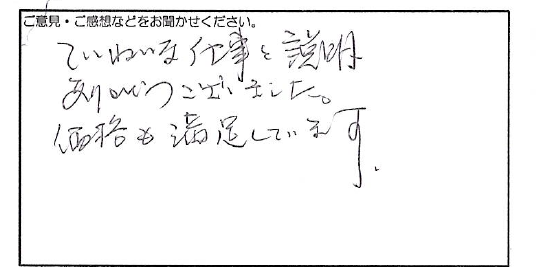 ご意見・ご感想などをお聞かせください。
ていねいな仕事と説明
ありがとうございました。
価格も満足しています.